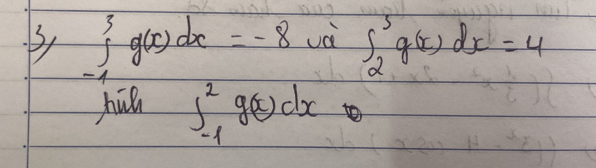 3, ∫₋₁³ g(x) dx = -8 và ∫₂³ g(x) dx = 4
Tính ∫₋₁² g(x) dx